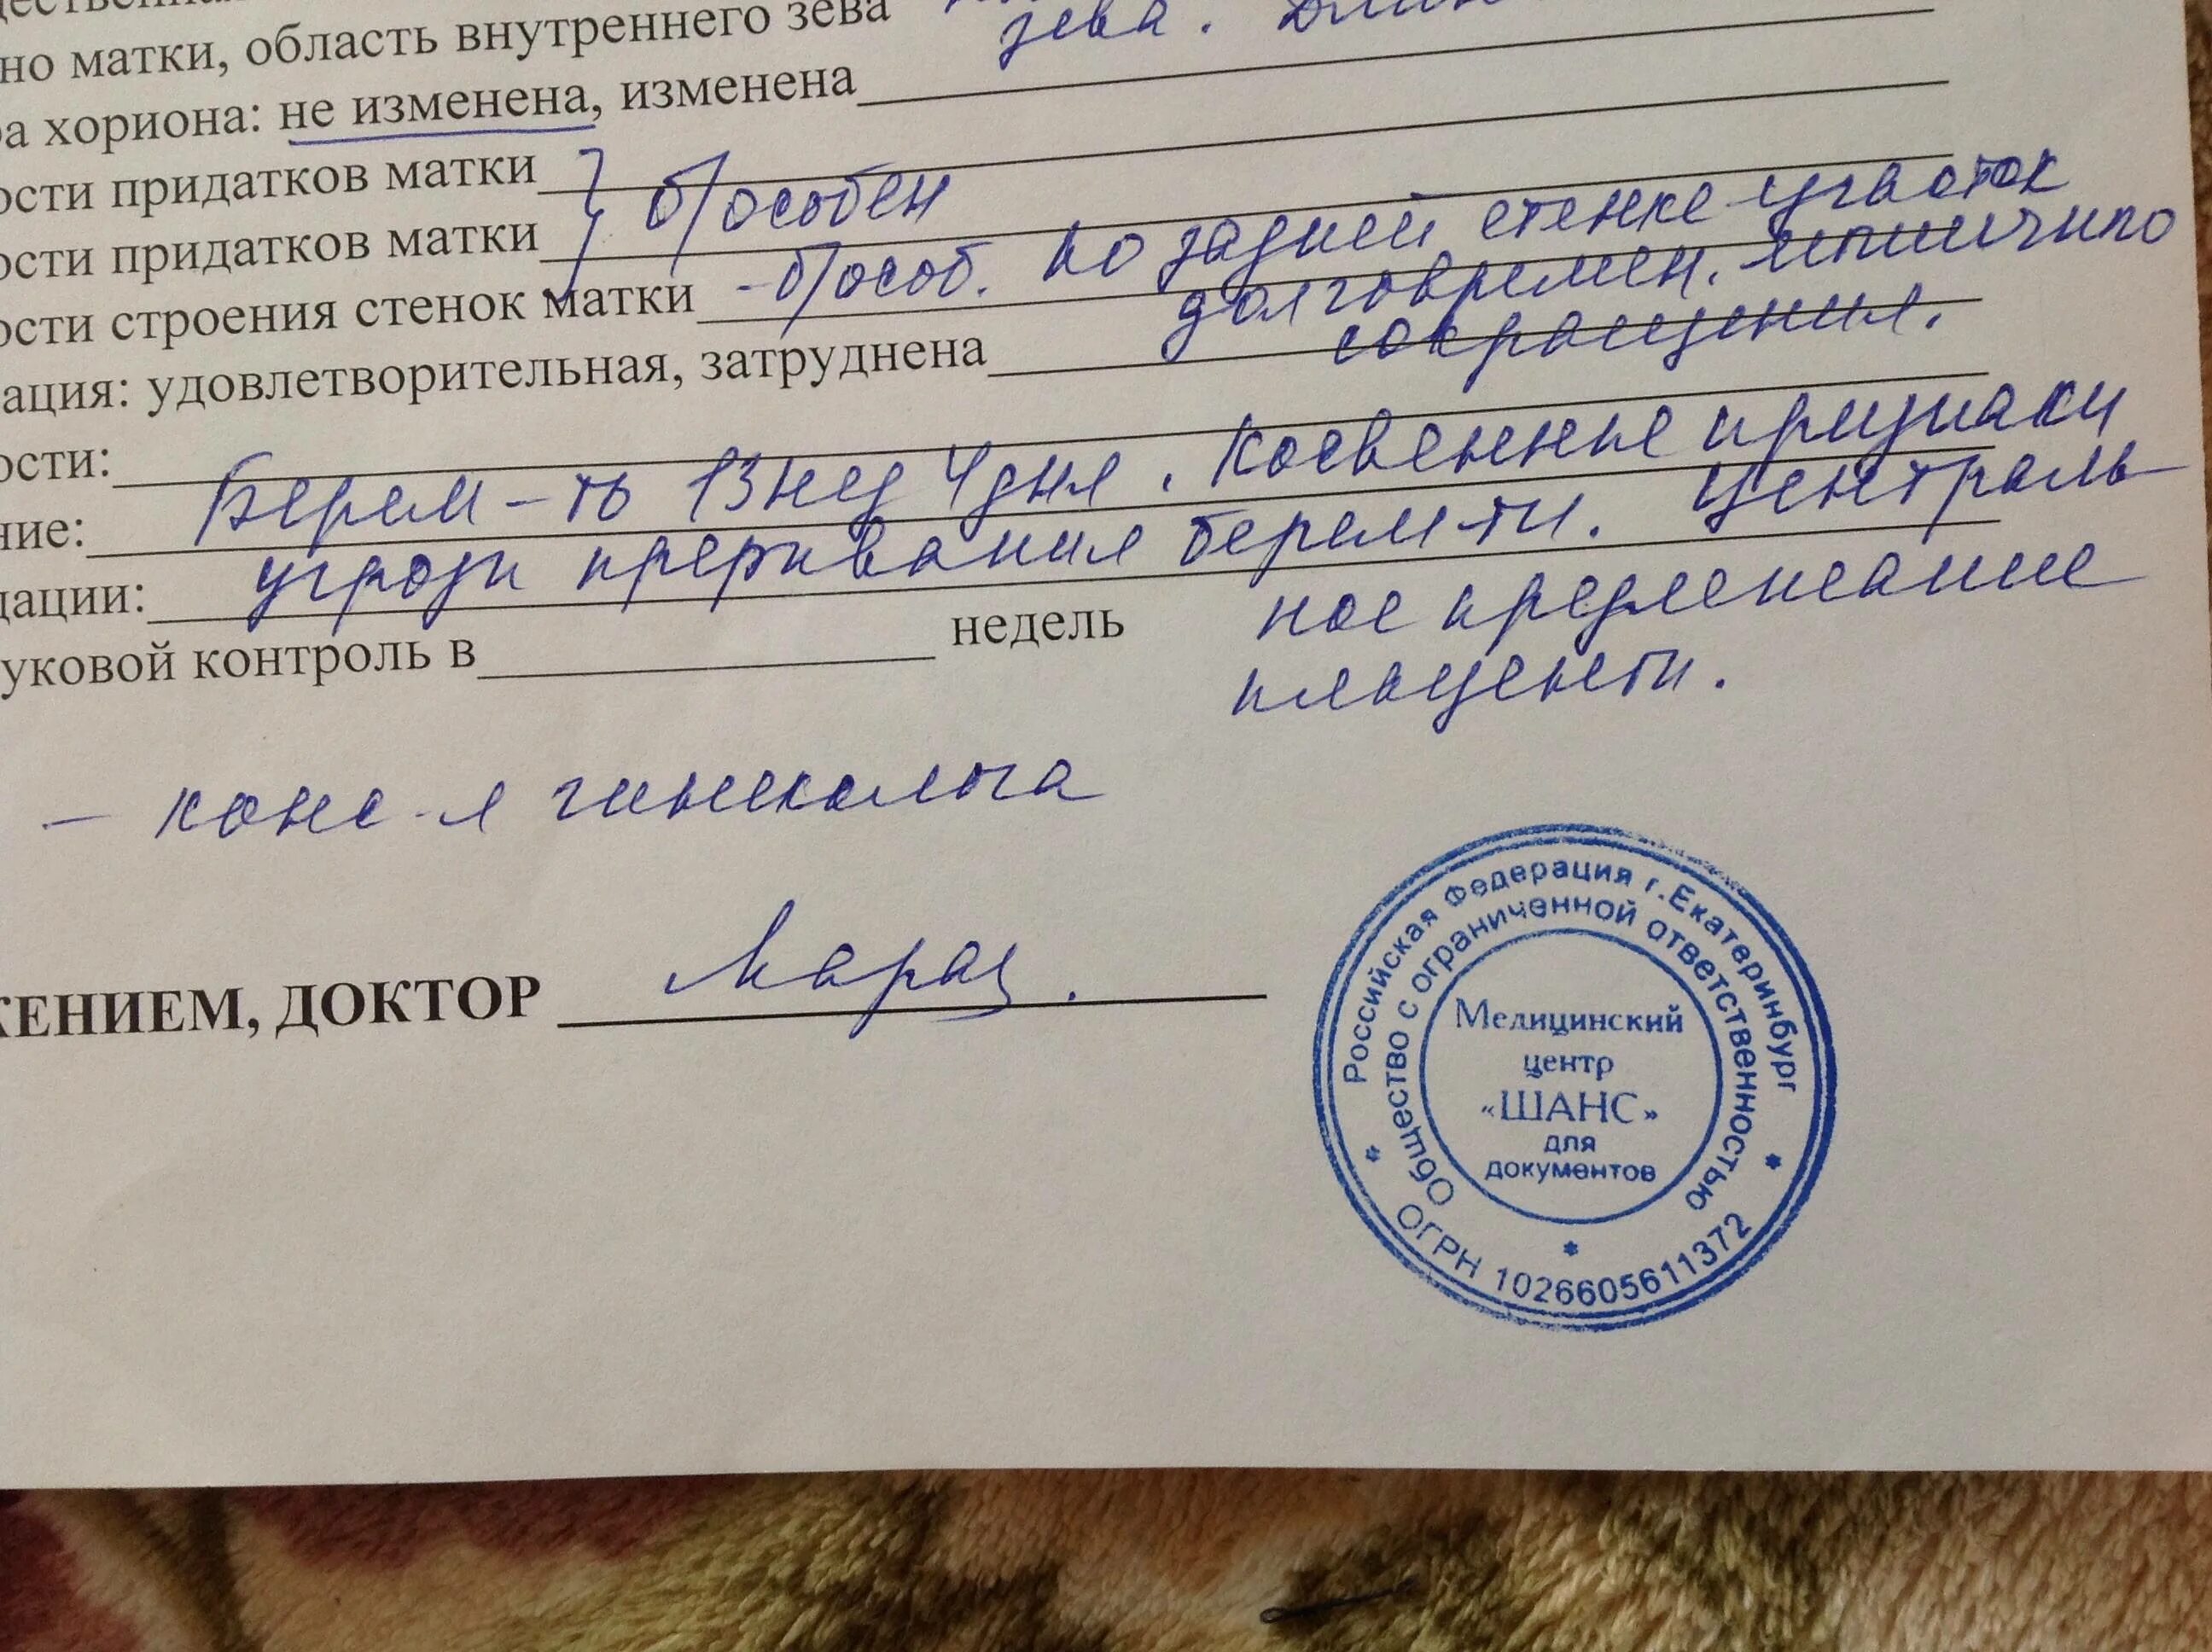 но матки, область внутреннего зева
зева.
а хориона: не изменена, изменена
ости придатков матки
ости придатков матки } б/особен
ости строения стенок матки - б/особ. по задней стенке участок
долговремен. локально
ация: удовлетворительная, затруднена сокращения.
ости:
Берем-ть 13 нед 4 дня. Косвенные признаки
ние:
угрозы прерывания берем-ти. Централь
дации:
уковой контроль в недель ное предлежание
плаценты.
- конс-я гинеколога
ЖЕНИЕМ, ДОКТОР
Российская Федерация г.Екатеринбург
Общество с ограниченной ответственностью
Медицинский
центр
«ШАНС»
для
документов
ОГРН 1026605611372